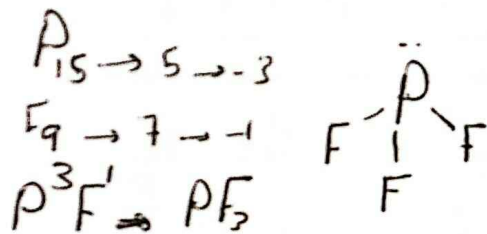 P₁₅ → 5 → -3
F₉ → 7 → -1
P³F¹ → PF₃
P
F F
F